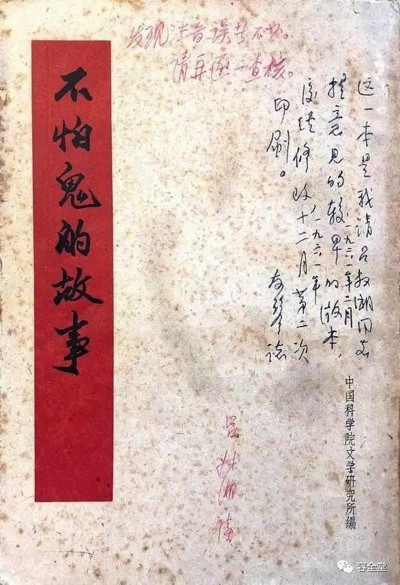 发现注音误不少。
请再逐一查核。
这一本是我请吕叔湘同志
一九六一年二月
提意见的较早的版本，
修改十二月第二次
一九六一年
印刷。
友琴志
中国科学院文学研究所编
吕叔湘
不怕鬼的故事
容全堂